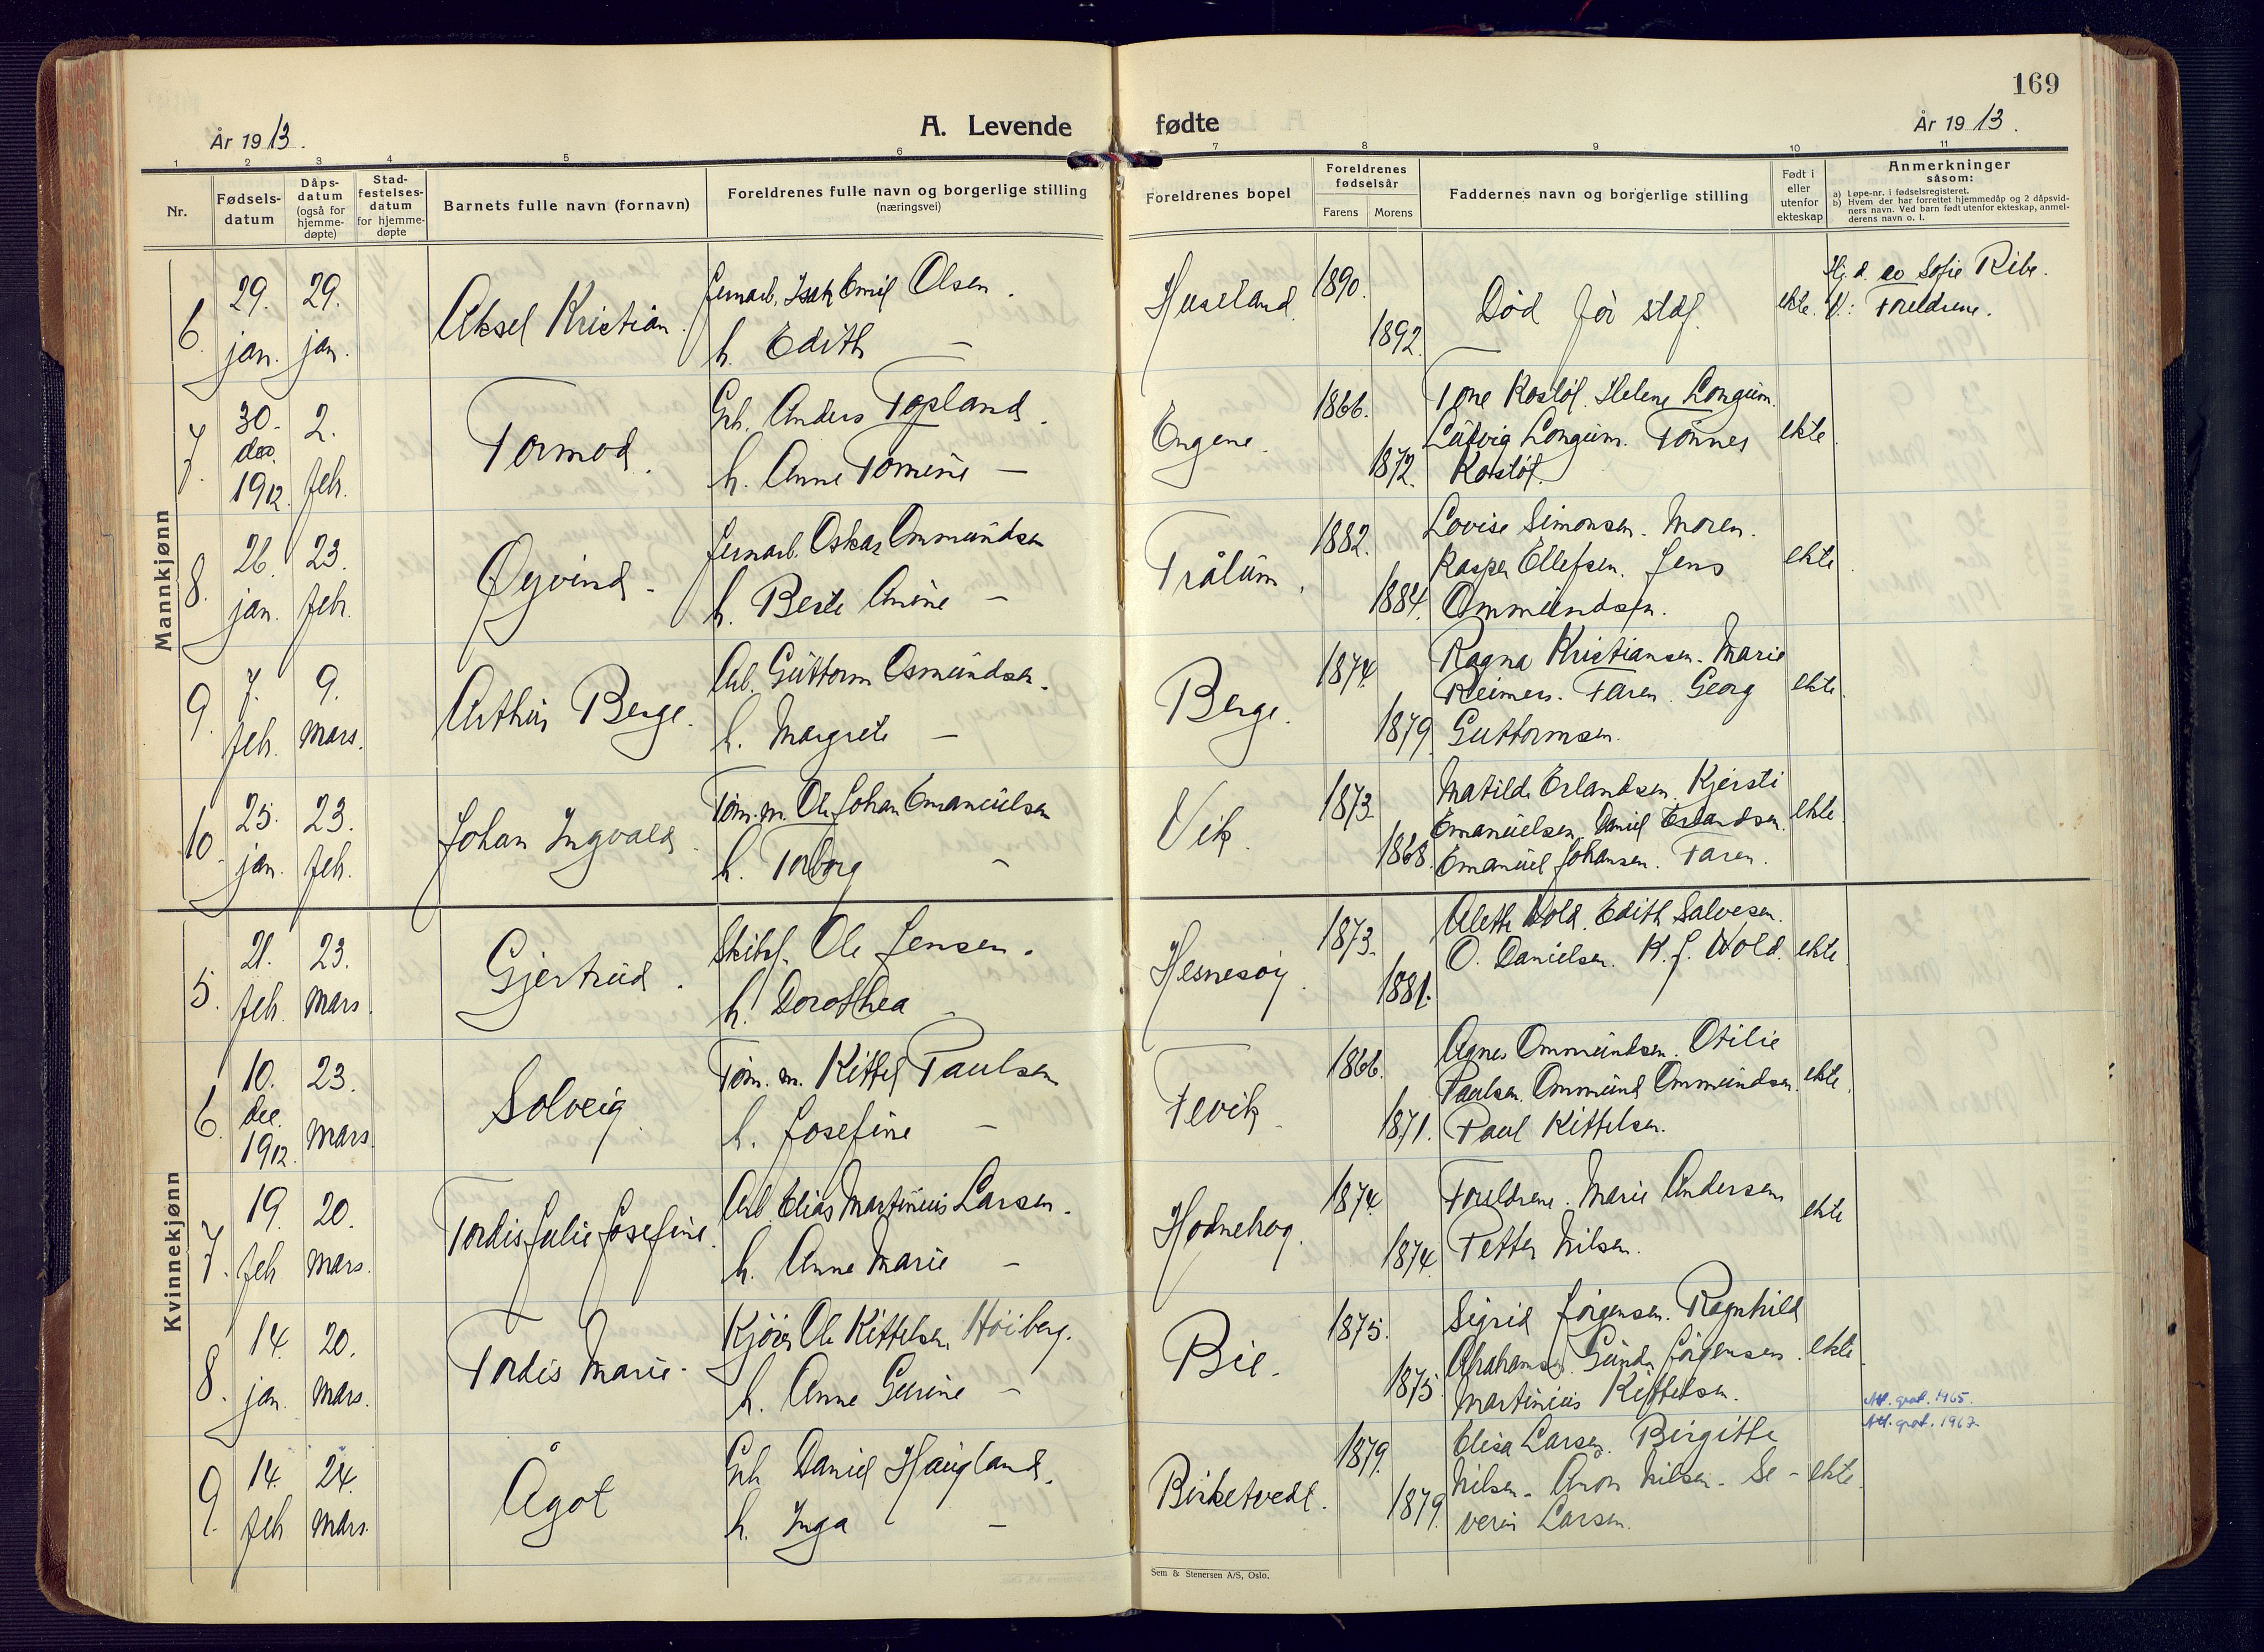 169
År 1913.
A. Levende fødte
År 1913.
1 2 3 4 5 6 7 8 9 10 11
Nr.
Fødsels-
datum
Dåps-
datum
(også for
hjemme-
døpte)
Stad-
festelses-
datum
for hjemme-
døpte
Barnets fulle navn (fornavn)
Foreldrenes fulle navn og borgerlige stilling
(næringsvei)
Foreldrenes bopel
Foreldrenes
fødselsår
Farens Morens
Faddernes navn og borgerlige stilling
Født i
eller
utenfor
ekteskap
Anmerkninger
såsom:
a) Løpe-nr. i fødselsregisteret.
b) Hvem der har forrettet hjemmedåp og 2 dåpsvid-
ners navn. Ved barn født utenfor ekteskap, anmel-
derens navn o. l.
Mannkjønn
6. 29. jan. 29. jan.
Aksel Kristian.
Jernarb. Isak Emil Olsen.
h. Edith —
Huseland. 1890. 1892.
Død før stdf.
ekte.
Hj.d. av Sofie Ribe.
V: Foreldrene.
7. 30. des. 1912. 2. feb.
Tormod.
Grb. Anders Topland.
h. Anne Tomine —
Engene. 1866. 1872.
Tone Kostøl. Helene Longum.
Ludvig Longum. Tønnes
Kostøl.
ekte.
8. 26. jan. 23. febr.
Øyvind.
Jernarb. Oskar Ommundsen
h. Berte Anine —
Trålum. 1882. 1884.
Lovise Simonsen. Moren.
Kasper Ellefsen. Jens
Ommundsen.
ekte.
9. 7. feb. 9. mars.
Arthur Berge.
Arb. Guttorm Osmundsen.
h. Margrete —
Berge. 1874. 1879.
Ragna Kristiansen. Marie
Reimers. Faren. Georg
Guttormsen.
ekte.
10. 25. jan. 23. feb.
Johan Ingvald.
Tøm.m. Ole Johan Emanuelsen
h. Torborg —
Vik. 1873. 1868.
Matilde Erlandsen. Kjersti
Emanuelsen. Daniel Erlandsen.
Emanuel Johansen. Faren.
ekte.
Kvinnekjønn
5. 21. feb. 23. mars.
Gjertrud.
Skibsf. Ole Jensen.
h. Dorothea —
Hesnesøy. 1873. 1881.
Alette Wold. Edith Salvesen.
O. Danielsen. K. J. Wold.
ekte.
6. 10. dec. 1912. 23. mars.
Solveig
Tøm. m. Kittel Paulsen
h. Josefine —
Fevik. 1866. 1871.
Agnes Ommundsen. Otilie
Paulsen. Ommund Ommundsen.
Paul Kittelsen.
ekte.
7. 19. feb 20. mars.
Tordis Julie Josefine.
Arb. Elias Martinius Larsen.
h. Anne Marie —
Hodnebrog. 1874. 1874.
Foreldrene. Marie Andersen
Petter Nilsen.
ekte
8. 14. jan. 20. mars.
Tordis Marie.
Kjører Ole Kittelsen Høiberg.
h. Anne Gurine —
Bie. 1875. 1875.
Sigrid Jørgensen. Ragnhild
Abrahamsen. Gunder Jørgensen.
Martinius Kittelsen.
ekte.
Att. grat. 1965.
Att. grat. 1967
9. 14. feb 24. mars.
Ågot
Grb. Daniel Haugland.
h. Inga —
Birketvedt. 1879. 1879.
Elisa Larsen. Birgitte
Nilsen. Aron Nilsen. Se-
verin Larsen.
ekte.
Sem & Stenersen A/S, Oslo.